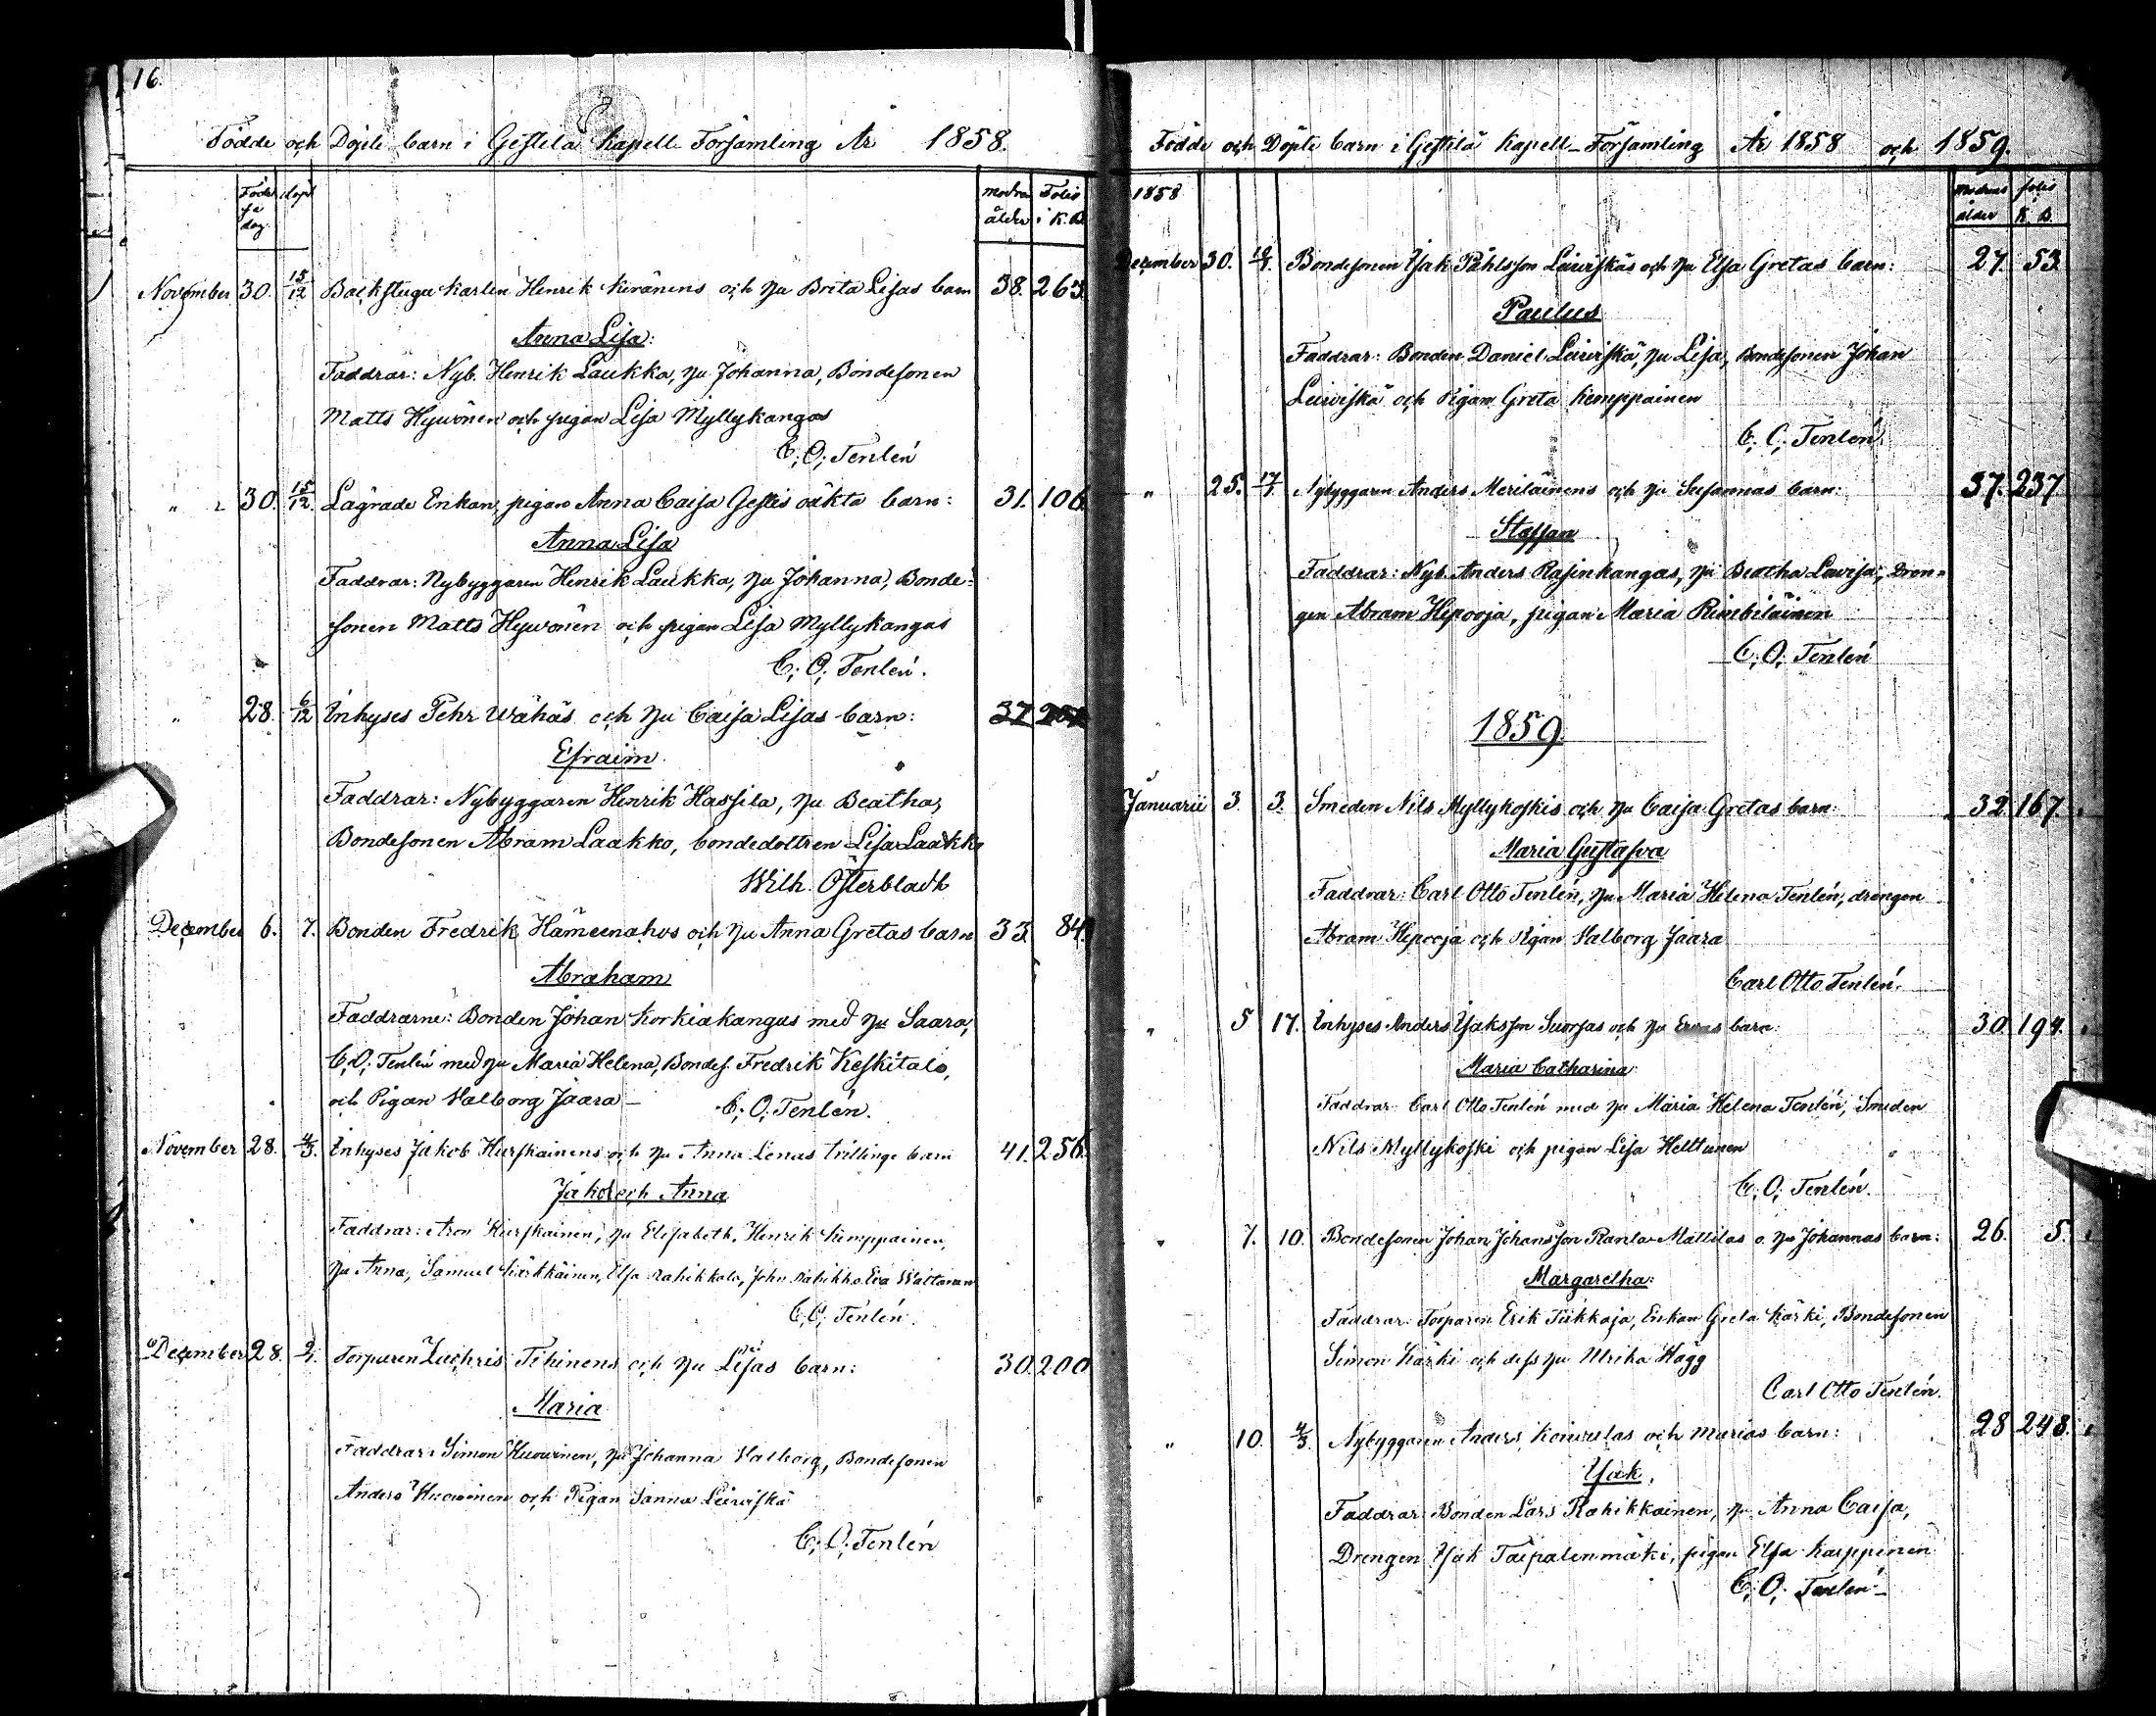 16.
Födde och Döpte barn i Gestila Kapell Församling År 1858.
Födel se dag döpt modrens ålder Folio i K.B.
November 30. 15/12 Backstugu karlen Henrik Kiränens och hu Brita Lisas barn 38. 263.
Anna Lisa:
Faddrar: Nyb. Henrik Laukka, hu Johanna, Bondesonen
Matts Hywönen och pigan Lisa Myllykangas
C; O; Tenlén
" 30. 15/12. Lägrade Enkan, pigan Anna Caisa Gestis oäkta barn: 31. 106.
Anna Lisa
Faddrar: Nybyggaren Henrik Laukka, hu Johanna, Bonde-
sonen Matts Hywönen och pigan Lisa Myllykangas
C; O; Tenlén.
" 28. 6/12 Inhyses Pehr Wähäs och hu Caisa Lisas barn: 37
Efraim.
Faddrar: Nybyggaren Henrik Hassila, hu Beatha,
Bondesonen Abram Laakko, bondedottren Lisa Laakko
Wilh. Österbladh
December 6. 7. Bonden Fredrik Hämeenahos och hu Anna Gretas barn 33. 84.
Abraham
Faddrarne: Bonden Johan Korkiakangas med hu Saara,
C; O; Tenlén med hu Maria Helena, Bondes. Fredrik Keskitalo,
och Pigan Walborg Jaara – C; O; Tenlén.
November 28. 4/3. Inhyses Jakob Hurskainens och hu Anna Lenas trillinge barn 41. 256.
Jakob och Anna
Faddrar: Aron Hurskainen, hu Elisabeth, Henrik Kemppainen,
hu Anna, Samuel Kärkkäinen, Elsa Rahikkala, John Rahikka Eva Wättänen
C; O; Tenlén.
December 28. 2/1. Torparen Zachris Tihinens och hu Lisas barn: 30. 200
Maria
Faddrar: Simon Huovinen, hu Johanna Walborg, Bondesonen
Anders Huovinen och Pigan Sanna Leiviskä
C; O; Tenlén
Födde och Döpte barn i Gestilä Kapell-Församling År 1858 och 1859.
1858 Modrens ålder folio K. B.
December 30. Bondesonen Isak Påhlsson Leiviskäs och hu Elsa Gretas barn: 27. 53.
Paulus
Faddrar: Bonden Daniel Leiviskä, hu Lisa, Bondesonen Johan
Leiviskä och Pigan Greta Kemppainen
C; O; Tenlén.
" 25. 17/1. Nybyggaren Anders Meriläinens och hu Susannas barn: 37. 237.
Staffan
Faddrar: Nyb. Anders Rasinkangas, hu Beatha Lovisa, Dren-
gen Abram Hepooja, pigan Maria Rimbiläinen
C; O; Tenlén
1859.
Januarii 3. 3. Smeden Nils Myllykoskis och hu Caisa Gretas barn: 32. 167.
Maria Gustafva
Faddrar: Carl Otto Tenlén, hu Maria Helena Tenlén, drengen
Abram Hepooja och Pigan Walborg Jaara
Carl Otto Tenlén.
" 5 17. Inhyses Anders Isaksson Suorsas och hu barn: 30. 194.
Maria Catharina
Faddrar: Carl Otto Tenlén med hu Maria Helena Tenlén, Smeden
Nils Myllykoski och pigan Lisa Helttunen
C; O; Tenlén.
" 7. 10. Bondesonen Johan Johansson Ranta-Mattilas o. hu Johannas barn: 26. 5.
Margaretha:
Faddrar: Torparen Erik Tiikkaja, Enkan Greta Kärki, Bondesonen
Simon Kärki och dess hu Ulrika Hägg
Carl Otto Tenlén.
" 10. 4/3. Nybyggaren Anders Koivulas och Marias barn: 28 248.
Isak.
Faddrar: Bonden Lars Rahikkainen, hu Anna Caisa,
Drengen Isak Taipalenmäki, pigan Elsa Karppinen
C; O; Tenlén –